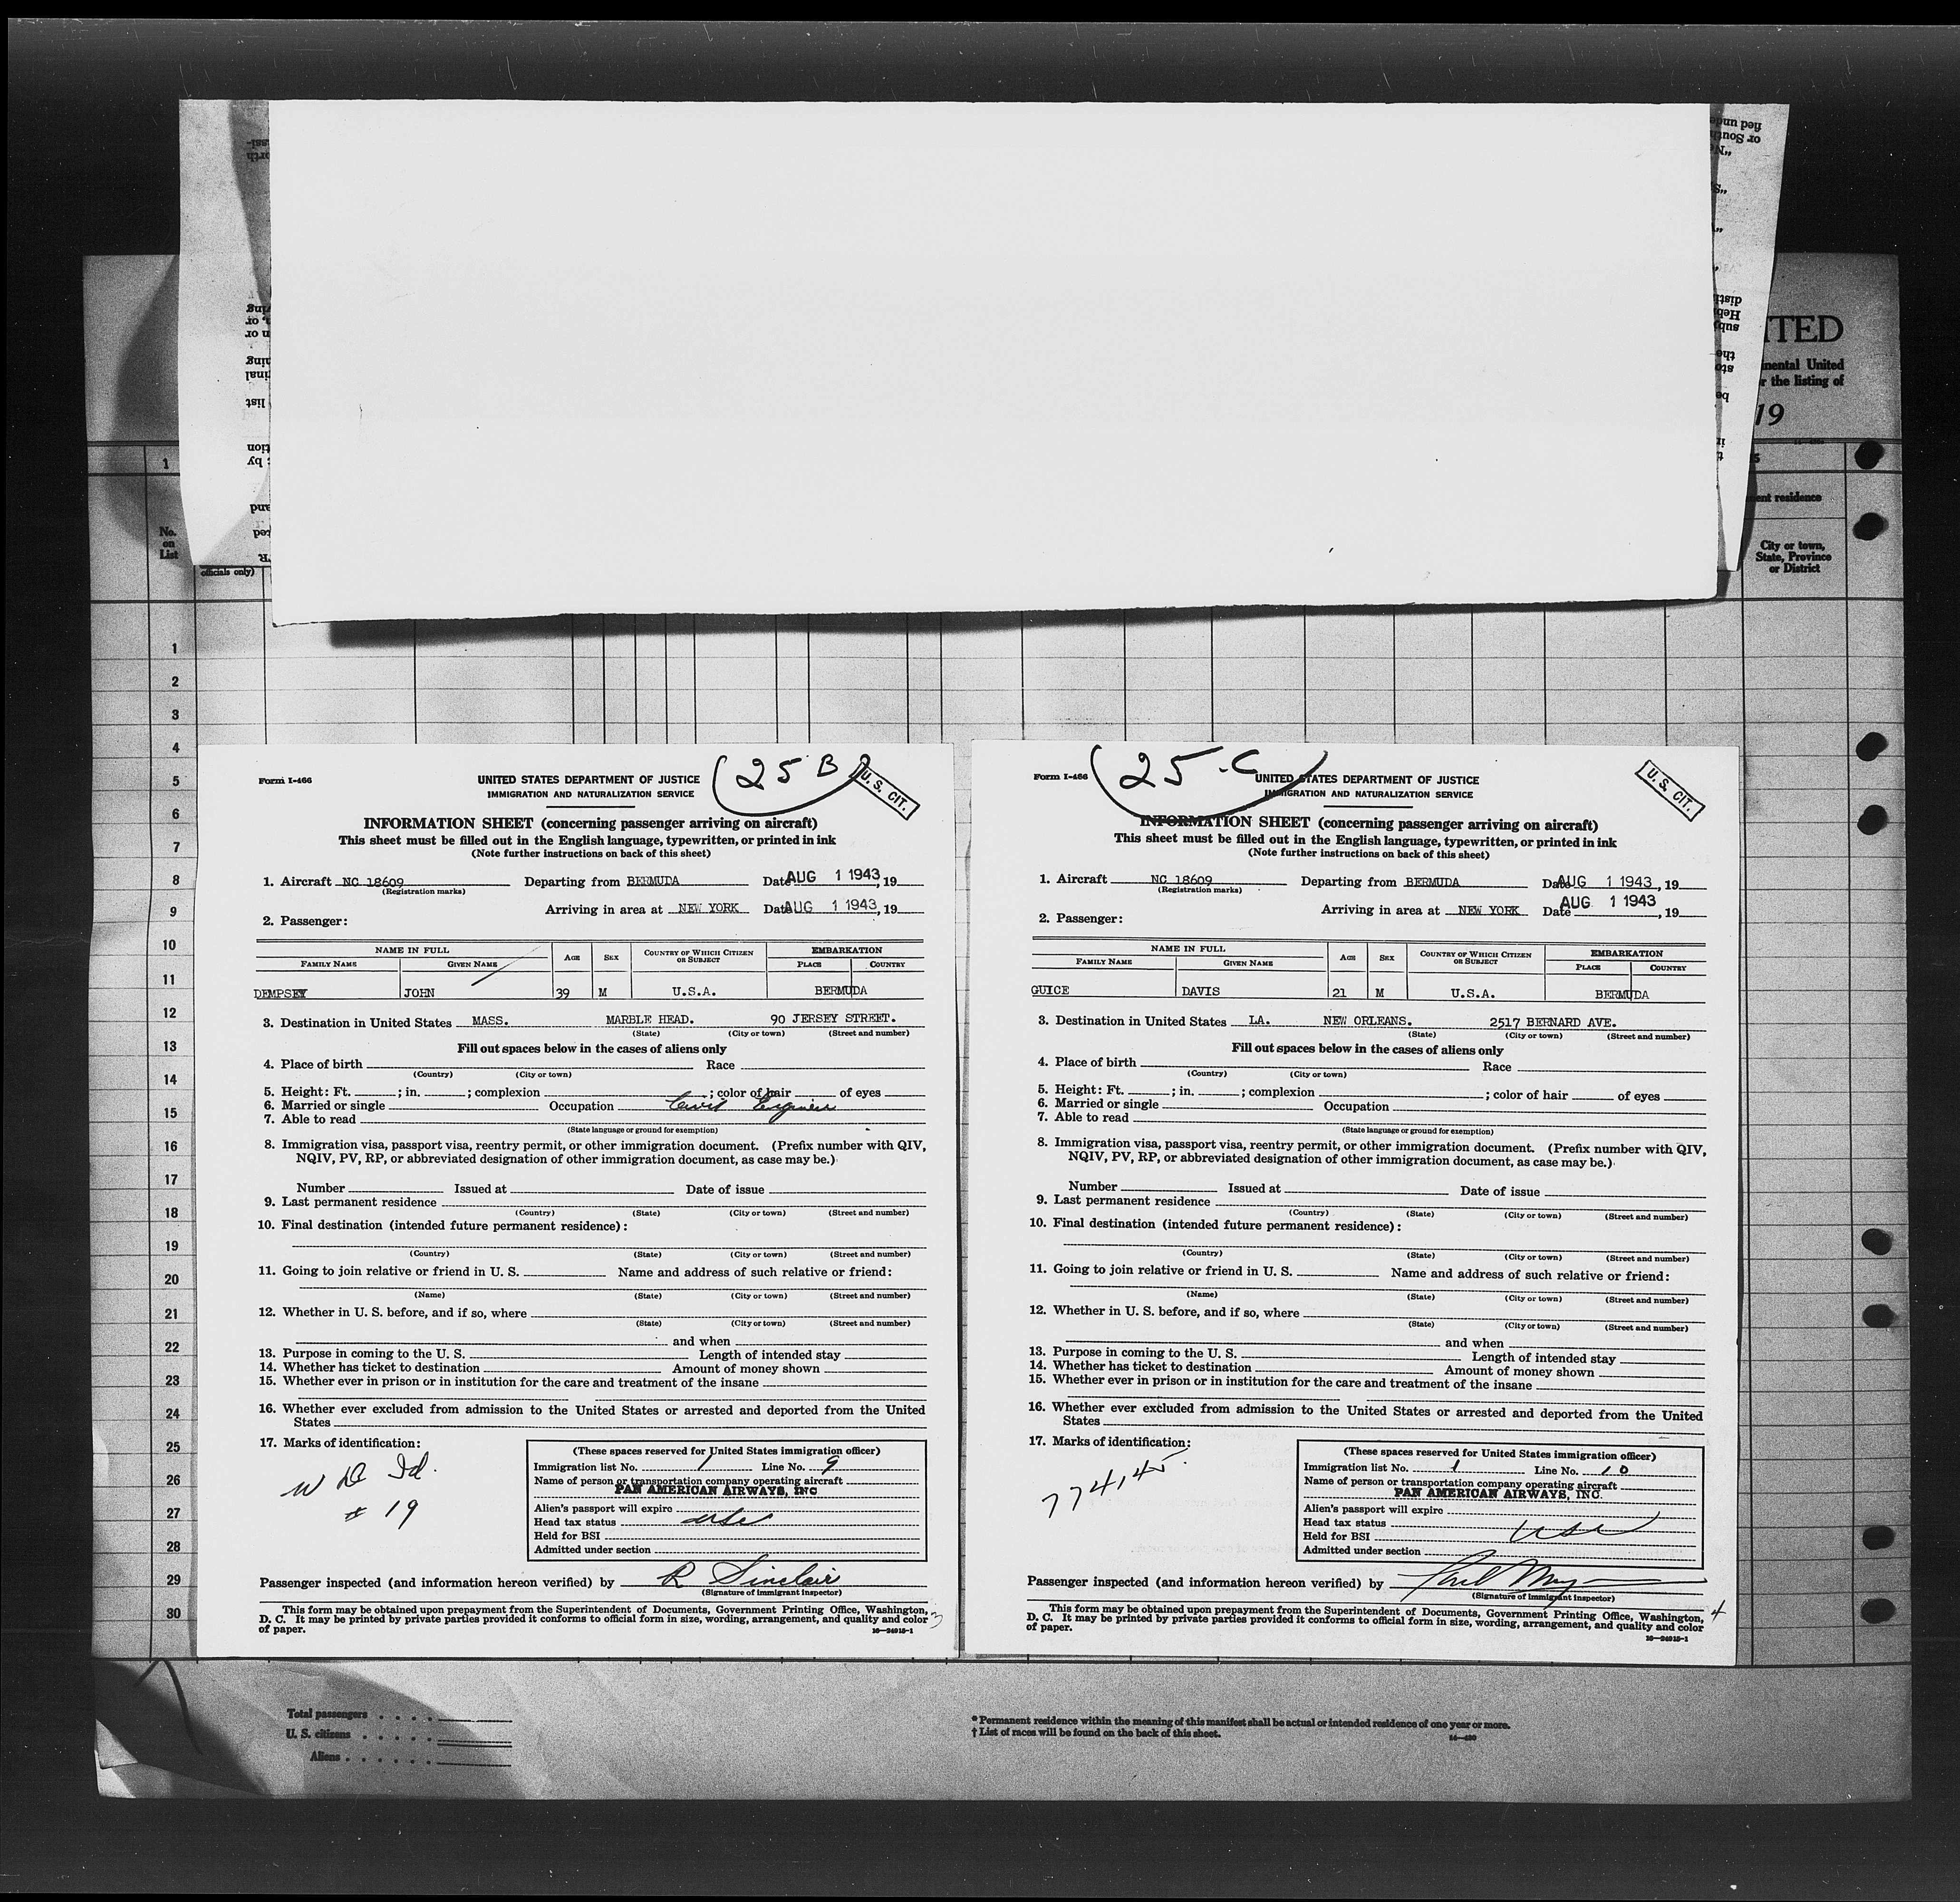 ITED
nental United
r the listing of
19
1
ent residence
No.
on
List
City or town,
State, Province
or District
officials only)
1
2
3
4
5
6
7
8
9
10
11
12
13
14
15
16
17
18
19
20
21
22
23
24
25
26
27
28
29
30
25 B
U. S. CIT.
Form I-466
UNITED STATES DEPARTMENT OF JUSTICE
IMMIGRATION AND NATURALIZATION SERVICE
INFORMATION SHEET (concerning passenger arriving on aircraft)
This sheet must be filled out in the English language, typewritten, or printed in ink
(Note further instructions on back of this sheet)
1. Aircraft NC 18609 Departing from BERMUDA Date AUG 1 1943, 19
(Registration marks)
Arriving in area at NEW YORK Date AUG 1 1943, 19
2. Passenger:
NAME IN FULL AGE SEX COUNTRY OF WHICH CITIZEN OR SUBJECT EMBARKATION
FAMILY NAME GIVEN NAME PLACE COUNTRY
DEMPSEY JOHN 39 M U.S.A. BERMUDA
3. Destination in United States MASS. MARBLE HEAD. 90 JERSEY STREET.
(State) (City or town) (Street and number)
Fill out spaces below in the cases of aliens only
4. Place of birth Race
(Country) (City or town)
5. Height: Ft. ; in. ; complexion ; color of hair of eyes
6. Married or single Occupation Civil Engineer
7. Able to read
(State language or ground for exemption)
8. Immigration visa, passport visa, reentry permit, or other immigration document. (Prefix number with QIV,
NQIV, PV, RP, or abbreviated designation of other immigration document, as case may be.)
Number Issued at Date of issue
9. Last permanent residence
(Country) (State) (City or town) (Street and number)
10. Final destination (intended future permanent residence):
(Country) (State) (City or town) (Street and number)
11. Going to join relative or friend in U. S. Name and address of such relative or friend:
(Name) (State) (City or town) (Street and number)
12. Whether in U. S. before, and if so, where
(State) (City or town) (Street and number)
and when
13. Purpose in coming to the U. S. Length of intended stay
14. Whether has ticket to destination Amount of money shown
15. Whether ever in prison or in institution for the care and treatment of the insane
16. Whether ever excluded from admission to the United States or arrested and deported from the United
States
17. Marks of identification:
W D Id.
# 19
(These spaces reserved for United States immigration officer)
Immigration list No. 1 Line No. 9
Name of person or transportation company operating aircraft
PAN AMERICAN AIRWAYS, INC
Alien's passport will expire
Head tax status usc
Held for BSI
Admitted under section
Passenger inspected (and information hereon verified) by R Sinclair
(Signature of immigrant inspector)
This form may be obtained upon prepayment from the Superintendent of Documents, Government Printing Office, Washington,
D. C. It may be printed by private parties provided it conforms to official form in size, wording, arrangement, and quality and color
of paper.
16—24915-1
3
25-C
U. S. CIT.
Form I-466
UNITED STATES DEPARTMENT OF JUSTICE
IMMIGRATION AND NATURALIZATION SERVICE
INFORMATION SHEET (concerning passenger arriving on aircraft)
This sheet must be filled out in the English language, typewritten, or printed in ink
(Note further instructions on back of this sheet)
1. Aircraft NC 18609 Departing from BERMUDA Date AUG 1 1943, 19
(Registration marks)
Arriving in area at NEW YORK Date AUG 1 1943, 19
2. Passenger:
NAME IN FULL AGE SEX COUNTRY OF WHICH CITIZEN OR SUBJECT EMBARKATION
FAMILY NAME GIVEN NAME PLACE COUNTRY
GUICE DAVIS 21 M U.S.A. BERMUDA
3. Destination in United States LA. NEW ORLEANS. 2517 BERNARD AVE.
(State) (City or town) (Street and number)
Fill out spaces below in the cases of aliens only
4. Place of birth Race
(Country) (City or town)
5. Height: Ft. ; in. ; complexion ; color of hair of eyes
6. Married or single Occupation
7. Able to read
(State language or ground for exemption)
8. Immigration visa, passport visa, reentry permit, or other immigration document. (Prefix number with QIV,
NQIV, PV, RP, or abbreviated designation of other immigration document, as case may be.)
Number Issued at Date of issue
9. Last permanent residence
(Country) (State) (City or town) (Street and number)
10. Final destination (intended future permanent residence):
(Country) (State) (City or town) (Street and number)
11. Going to join relative or friend in U. S. Name and address of such relative or friend:
(Name) (State) (City or town) (Street and number)
12. Whether in U. S. before, and if so, where
(State) (City or town) (Street and number)
and when
13. Purpose in coming to the U. S. Length of intended stay
14. Whether has ticket to destination Amount of money shown
15. Whether ever in prison or in institution for the care and treatment of the insane
16. Whether ever excluded from admission to the United States or arrested and deported from the United
States
17. Marks of identification:
774145.
(These spaces reserved for United States immigration officer)
Immigration list No. 1 Line No. 10
Name of person or transportation company operating aircraft
PAN AMERICAN AIRWAYS, INC.
Alien's passport will expire
Head tax status
Held for BSI usc
Admitted under section
Passenger inspected (and information hereon verified) by
(Signature of immigrant inspector)
This form may be obtained upon prepayment from the Superintendent of Documents, Government Printing Office, Washington,
D. C. It may be printed by private parties provided it conforms to official form in size, wording, arrangement, and quality and color
of paper.
16—24915-1
4
Total passengers
U. S. citizens
Aliens
* Permanent residence within the meaning of this manifest shall be actual or intended residence of one year or more.
† List of races will be found on the back of this sheet.